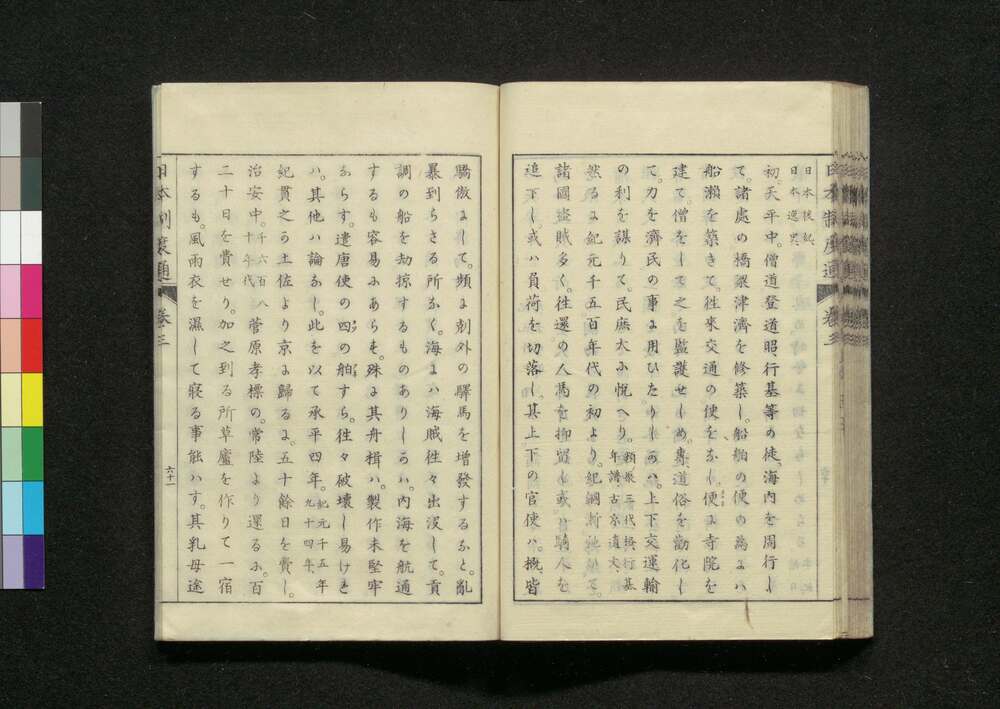 日本制度通 卷三
日本後紀、日本逸史、
初、天平中。僧道登道昭、行基等の徒、海内を周行し
て。諸處の橋梁津濟を修築し。船舶の便の為には
船瀬を築きて。徃來交通の便をなし。便に寺院を
建て。僧をして之を監護せしめ。専、道俗を勸化し
て。力を濟民の事に用ひたりしかハ。上下交運輸
の利を謀りて。民庶大に悦へり。類聚三代格、行基年譜、古京遺文、
然るに紀元千五百年代の初より。紀綱漸弛みて。
諸國盗賊多く。徃還の人馬を抑留し。或ハ騎人を
追下し。或ハ負荷を切落し。其上下の官使ハ。概皆
驕傲にして。頻に刻外の驛馬を増發するなと。亂
暴到らさる所なく。海にハ海賊徃々出沒して。貢
調の船を劫掠するものありしかハ。内海を航通
するも容易にあらす。殊に其舟楫ハ。製作未堅牢
ならす。遣唐使の四の舶すら。徃々破壊し易けれ
ハ。其他ハ論なし。此を以て承平四年。紀元千五百九十四年、
紀貫之か土佐より京に歸るに。五十餘日を費し。
治安中。千六百八十年代 菅原孝標の。常陸より還るに。百
二十日を費せり。加之到る所草廬を作りて一宿
するも。風雨衣を濕して寝る事能ハす。其乳母途
日本制度通 卷三
六十一